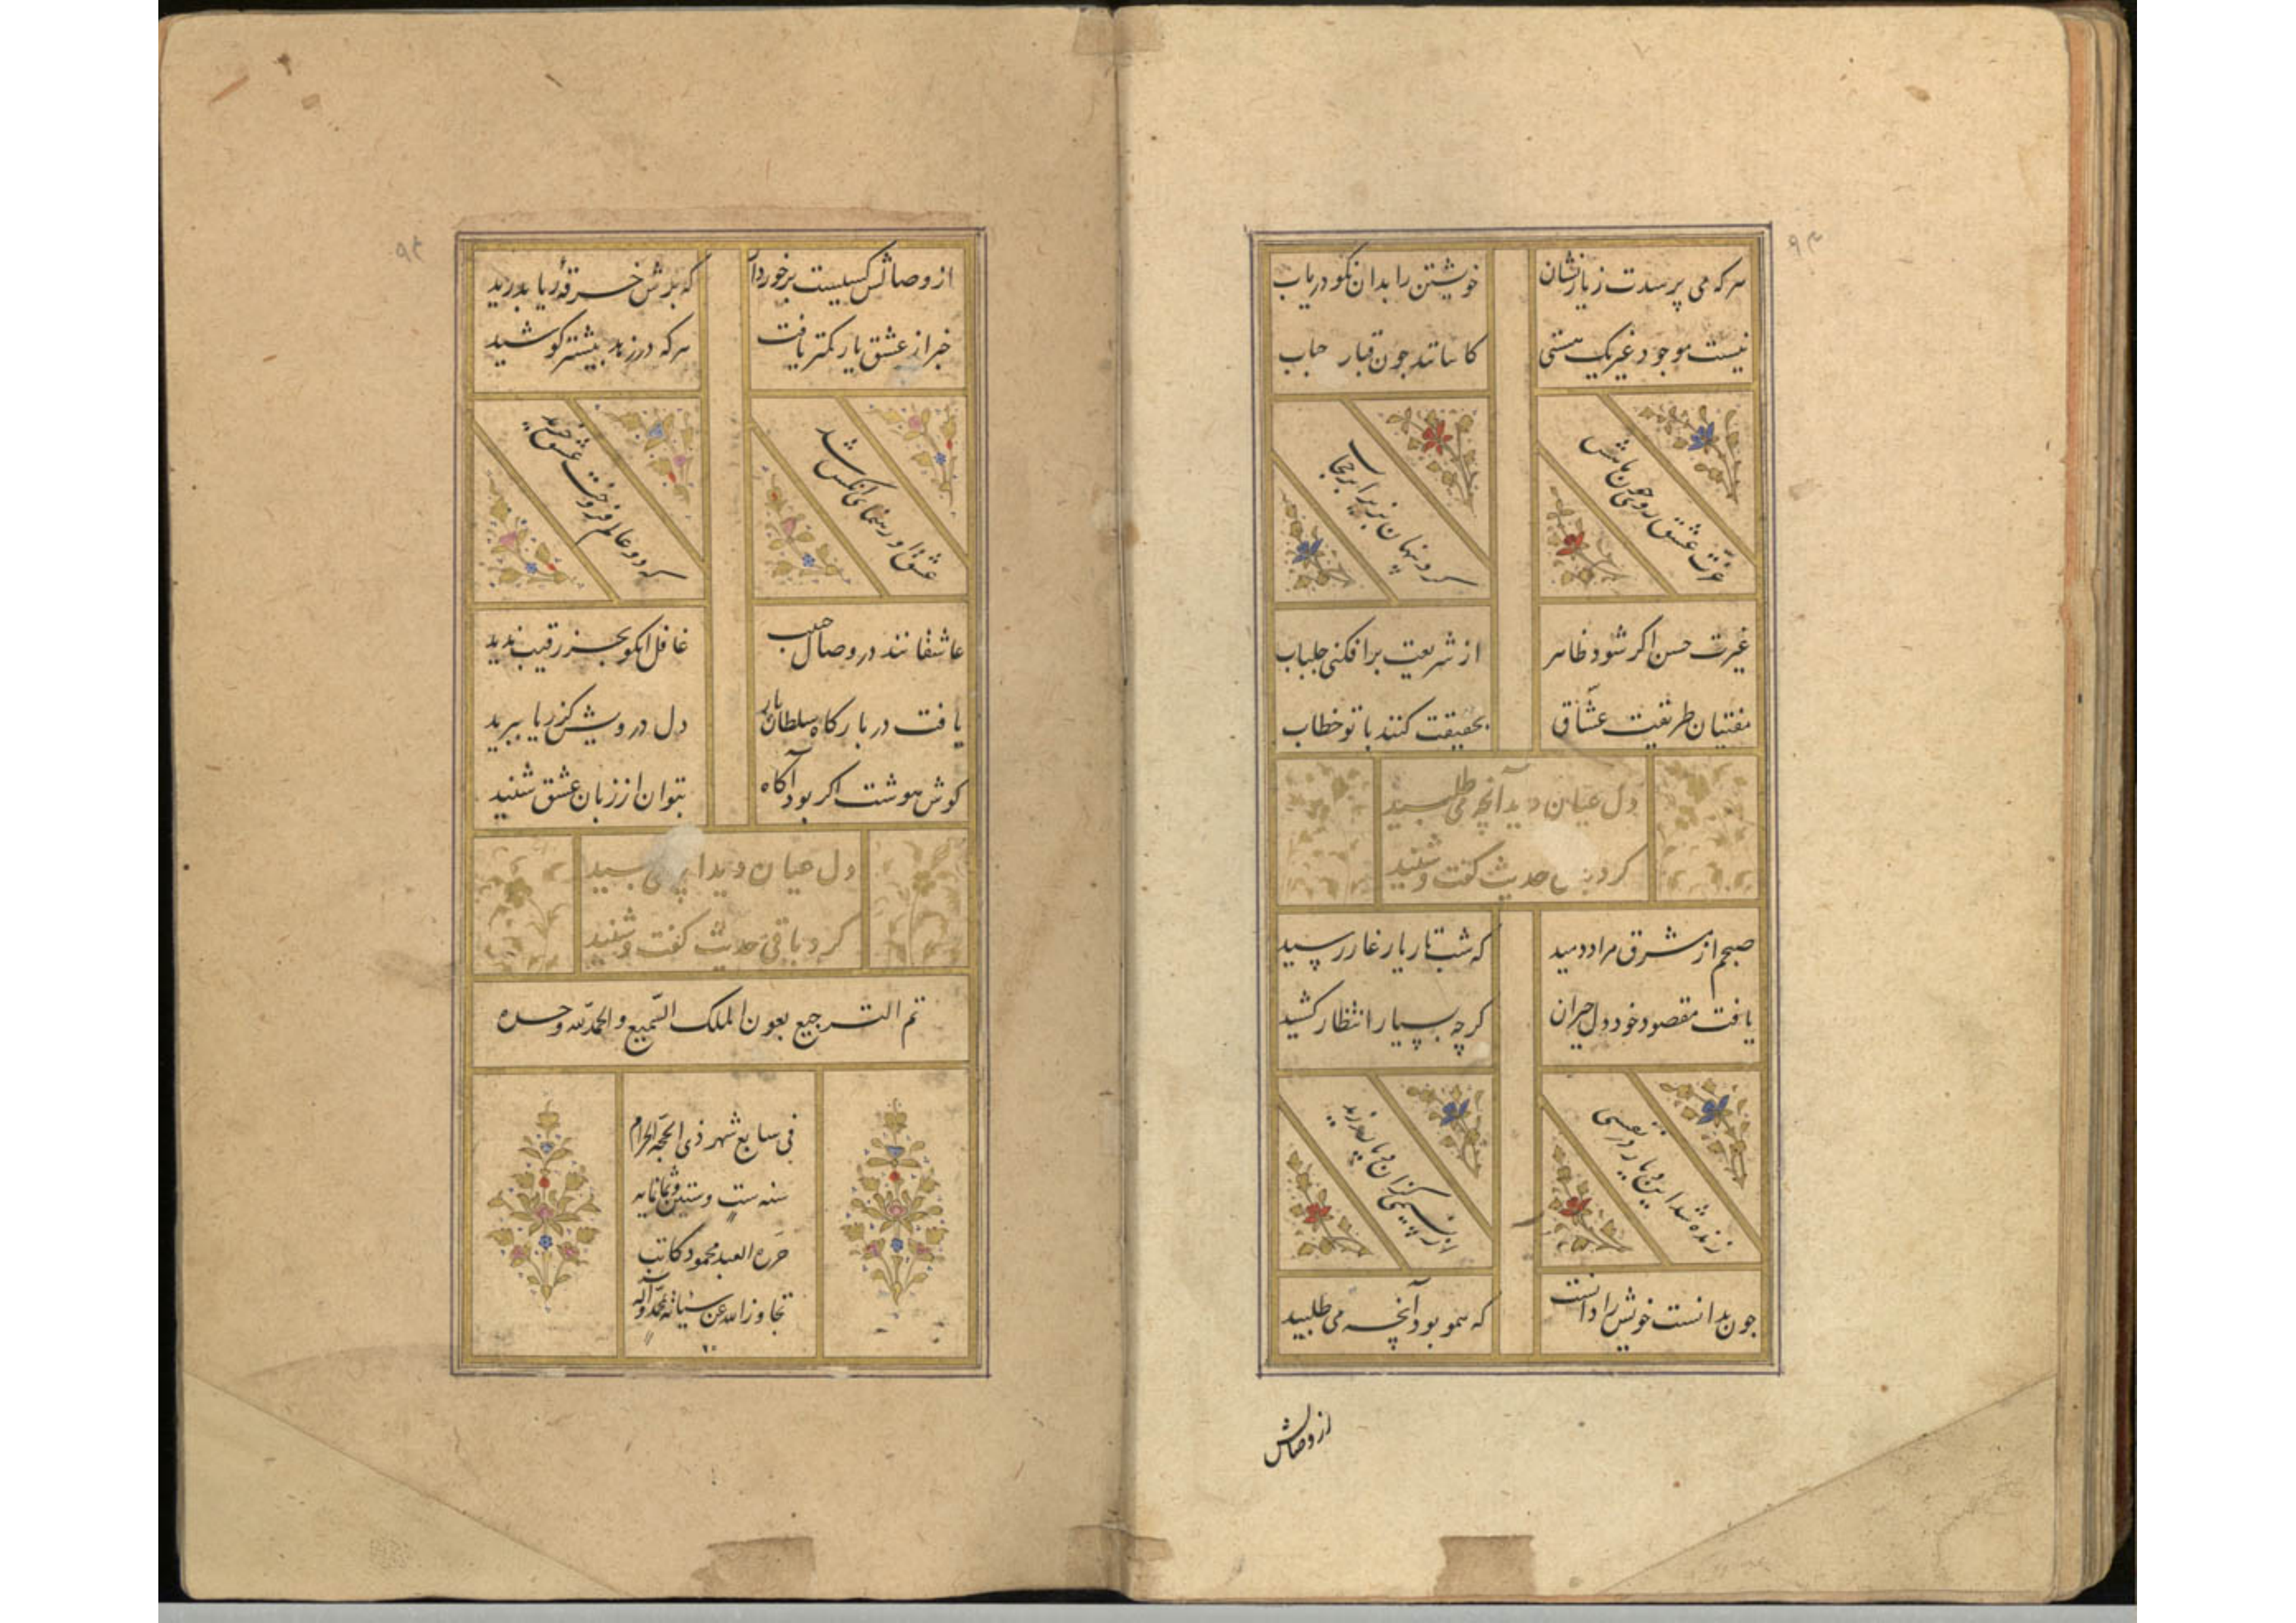 ۹۳
هرکه می پرسدت ز یار نشان خویشتن را بدان نکو دریاب
نیست موجود غیر یک هستی کاسمانند چون قباب حباب
غرّت عشق روی چون ماهش کرد پنهان بزیر ابر حجاب
غیرت حسن اگر شود ظاهر از شریعت برافکنی جلباب
مفتیان طریقت عشّاق بحقیقت کنند با تو خطاب
دل عیان دید آنچه می طلبید
کرد باقی حدیث گفت و شنید
صبحم از مشرق مراد دمید که شب تار یار غار رسید
یافت مقصود خود دل حیران گرچه بسیار انتظار کشید
زنده شد این و یا در نفسی از نسیمی کزان وزید
چون بدانست خویش را دانست که همو بود آنچه می طلبید
از وصالش
۹۴
از وصالش کسیست برخوردار که بدش خرقهٔ ریا بدرید
خبر از عشق یار کمتر یافت هرکه در زهد بیشتر کوشید
عشق او رهنمای آنکس شد که دو عالم فروخت عشق خرید
عاشقانند در وصال حبیب غافل آنکو بجز رقیب ندید
یافت در بارگاه سلطان بار دل درویش کز ریا ببرید
گوش هوشت اگر بود آگاه بتوان از زبان عشق شنید
دل عیان دید می طلبید
کرد باقی حدیث گفت و شنید
تم الترجیع بعون الملک السّمیع والحمدلله وحده
فی سابع شهر ذی الحجّه الحرام
سنه ستّ و ستین و ثمانمایه
حرّره العبد محمود کاتب
تجاوز الله عن سیّاته بمحمّد و آله